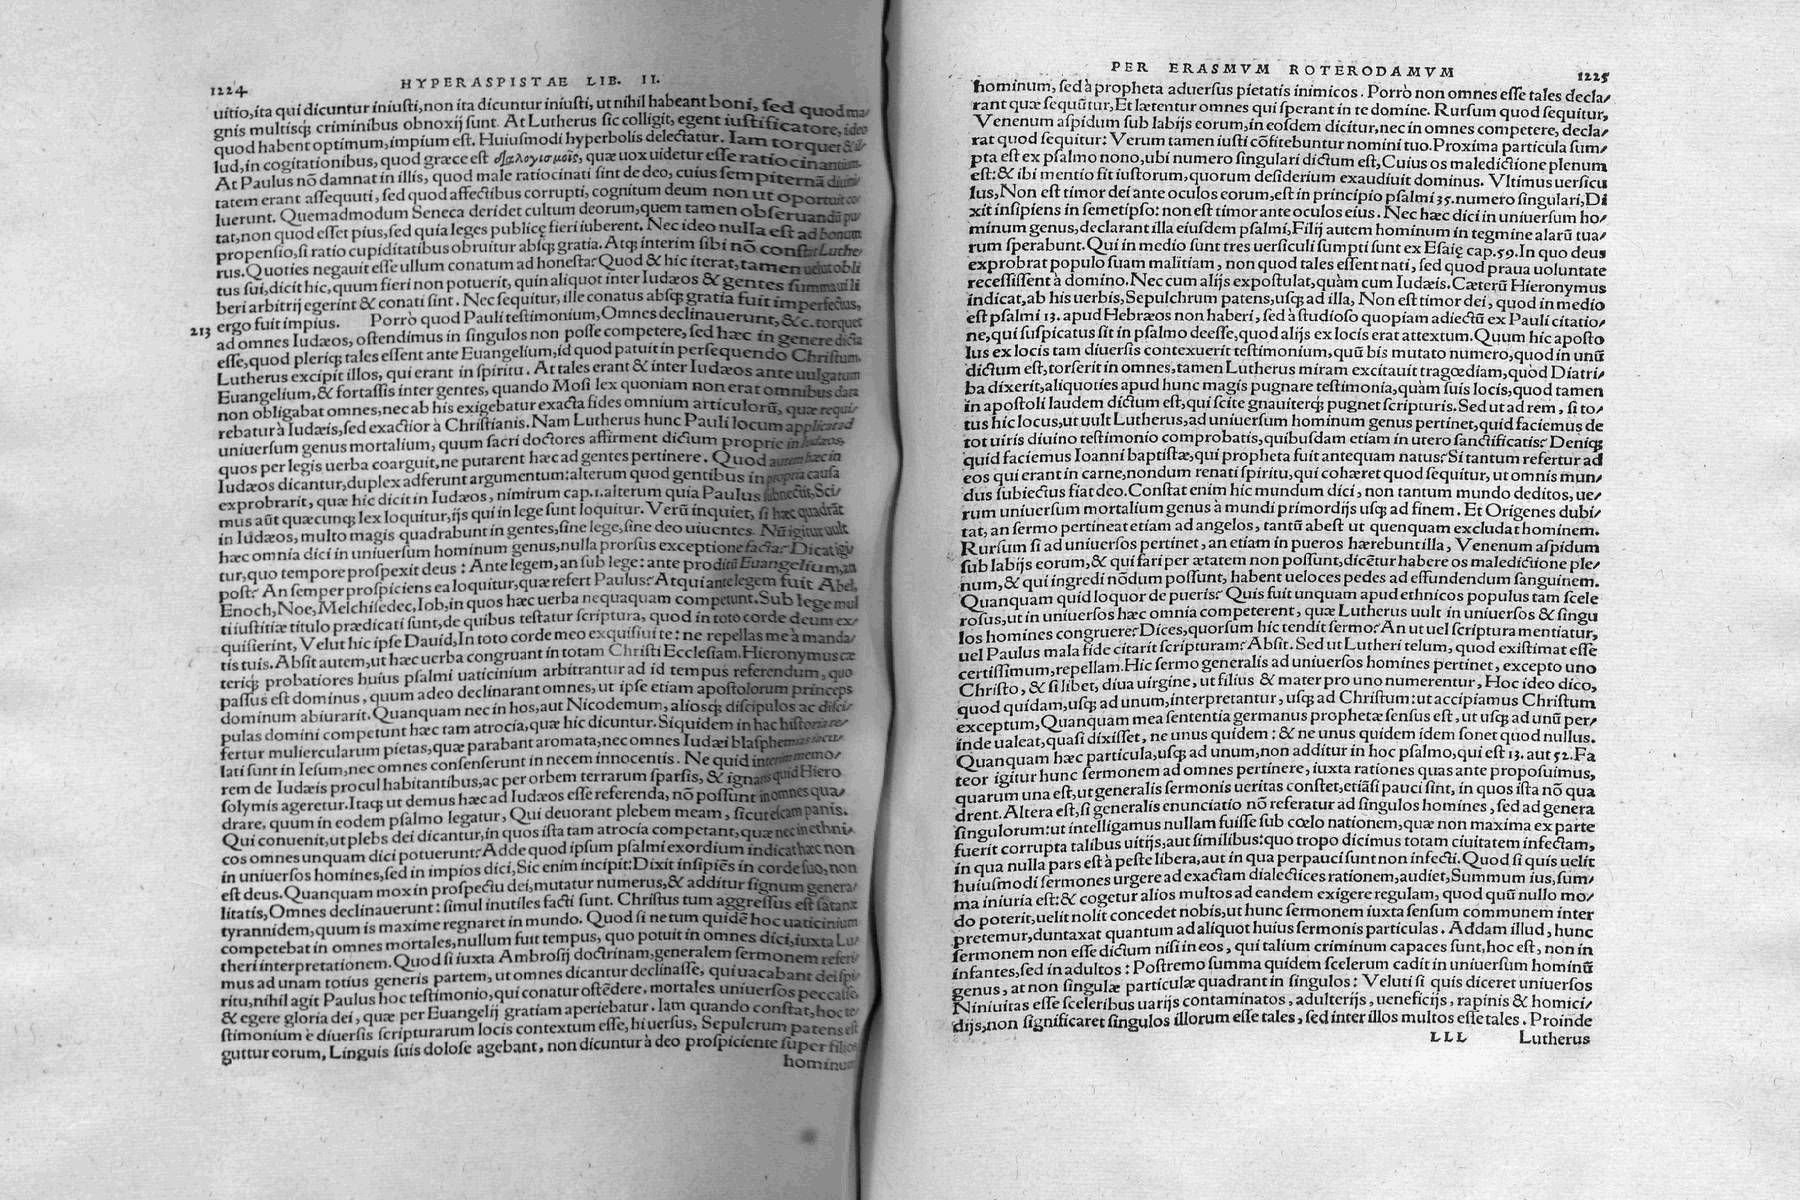 1224 HYPERASPISTAE LIB. II.
uitio,ita qui dicuntur iniusti,non ita dicuntur iniusti, ut nihil habeant boni, sed quod ma/
gnis multisq; criminibus obnoxij sunt. At Lutherus sic colligit, egent iustificatore, ideo
quod habent optimum, impium est. Huiusmodi hyperbolis delectatur. Iam torquet & il/
lud, in cogitationibus, quod græce est διαλογισμοῖς, quæ uox uidetur esse ratiocinantium.
At Paulus nõ damnat in illis, quod male ratiocinati sint de deo, cuius sempiternã diuini/
tatem erant assequuti, sed quod affectibus corrupti, cognitum deum non ut oportuit co/
luerunt. Quemadmodum Seneca deridet cultum deorum,quem tamen obseruandũ pu/
tat,non quod esset pius,sed quia leges publicę fieri iuberent. Nec ideo nulla est ad bonum
propensio,si ratio cupiditatibus obruitur absq; gratia. Atq; interim sibi nõ constat Luthe/
rus.Quoties negauit esse ullum conatum ad honesta? Quod & hic iterat, tamen uelut obli
tus sui,dicit hic,quum fieri non potuerit, quin aliquot inter Iudæos & gentes summa ui li
beri arbitrij egerint & conati sint. Nec sequitur, ille conatus absq; gratia fuit imperfectus,
213 ergo fuit impius. Porrò quod Pauli testimonium, Omnes declinauerunt, &c. torquet
ad omnes Iudæos, ostendimus in singulos non posse competere, sed hæc in genere dicta
esse,quod pleriq; tales essent ante Euangelium,id quod patuit in persequendo Christum.
Lutherus excipit illos, qui erant in spiritu. At tales erant & inter Iudæos ante uulgatum
Euangelium,& fortassis inter gentes, quando Mosi lex quoniam non erat omnibus data
non obligabat omnes,nec ab his exigebatur exacta fides omnium articulorũ, quæ requi/
rebatur à Iudæis,sed exactior à Christianis. Nam Lutherus hunc Pauli locum applicat ad
uniuersum genus mortalium, quum sacri doctores affirment dictum proprie in Iudæos,
quos per legis uerba coarguit,ne putarent hæc ad gentes pertinere. Quod autem hæc in
Iudæos dicantur,duplex adferunt argumentum:alterum quod gentibus in propria causa
exprobrarit, quæ hic dicit in Iudæos, nimirum cap.1.alterum quia Paulus subnectit,Sci/
mus aũt quæcunq; lex loquitur,ijs qui in lege sunt loquitur. Verũ inquiet, si hæc quadrãt
in Iudæos, multo magis quadrabunt in gentes,sine lege,sine deo uiuentes. Nũ igitur uult
hæc omnia dici in uniuersum hominum genus,nulla prorsus exceptione facta? Dicat igi/
tur,quo tempore prospexit deus: Ante legem,an sub lege: ante proditũ Euangelium,an
post? An semper prospiciens ea loquitur,quæ refert Paulus? Atqui ante legem fuit Abel,
Enoch, Noe, Melchisedec, Iob, in quos hæc uerba nequaquam competunt. Sub lege mul
ti iustitiæ titulo prædicati sunt,de quibus testatur scriptura, quod in toto corde deum ex/
quisierint, Velut hic ipse Dauid, In toto corde meo exquisiui te: ne repellas me à manda/
tis tuis. Absit autem, ut hæc uerba congruant in totam Christi Ecclesiam. Hieronymus cæ
teriq; probatiores huius psalmi uaticinium arbitrantur ad id tempus referendum, quo
passus est dominus, quum adeo declinarant omnes, ut ipse etiam apostolorum princeps
dominum abiurarit. Quanquam nec in hos,aut Nicodemum, aliosq; discipulos ac disci/
pulas domini competunt hæc tam atrocia,quæ hic dicuntur. Siquidem in hac historia re/
fertur muliercularum pietas,quæ parabant aromata,nec omnes Iudæi blasphemias iacu/
lati sunt in Iesum,nec omnes consenserunt in necem innocentis. Ne quid interim memo/
rem de Iudæis procul habitantibus,ac per orbem terrarum sparsis, & ignaris quid Hiero
solymis ageretur.Itaq; ut demus hæc ad Iudæos esse referenda, nõ possunt in omnes qua/
drare, quum in eodem psalmo legatur, Qui deuorant plebem meam, sicut escam panis.
Qui conuenit,ut plebs dei dicantur,in quos ista tam atrocia competant,quæ nec in ethni/
cos omnes unquam dici potuerunt? Adde quod ipsum psalmi exordium indicat hæc non
in uniuersos homines,sed in impios dici, Sic enim incipit: Dixit insipiēs in corde suo, non
est deus. Quanquam mox in prospectu dei,mutatur numerus,& additur signum genera/
litatis, Omnes declinauerunt: simul inutiles facti sunt. Christus tum aggressus est satanæ
tyrannidem,quum is maxime regnaret in mundo. Quod si ne tum quidē hoc uaticinium
competebat in omnes mortales,nullum fuit tempus, quo potuit in omnes dici,iuxta Lu/
theri interpretationem. Quod si iuxta Ambrosij doctrinam,generalem sermonem referi/
mus ad unam totius generis partem, ut omnes dicantur declinasse, qui uacabant dei spi/
ritu,nihil agit Paulus hoc testimonio,qui conatur ostēdere, mortales uniuersos peccasse,
& egere gloria dei, quæ per Euangelij gratiam aperiebatur. Iam quando constat, hoc te/
stimonium è diuersis scripturarum locis contextum esse, hi uersus, Sepulcrum patens est
guttur eorum, Linguis suis dolose agebant, non dicuntur à deo prospiciente super filios
hominum
PER ERASMVM ROTERODAMVM 1225
hominum, sed à propheta aduersus pietatis inimicos. Porrò non omnes esse tales decla/
rant quæ sequũtur,Et lætentur omnes qui sperant in te domine. Rursum quod sequitur,
Venenum aspidum sub labijs eorum,in eosdem dicitur,nec in omnes competere, decla/
rat quod sequitur: Verum tamen iusti cõfitebuntur nomini tuo.Proxima particula sum/
pta est ex psalmo nono,ubi numero singulari dictum est,Cuius os maledictione plenum
est:& ibi mentio fit iustorum,quorum desiderium exaudiuit dominus. Vltimus uersicu
lus,Non est timor dei ante oculos eorum,est in principio psalmi 35.numero singulari,Di
xit insipiens in semetipso: non est timor ante oculos eius. Nec hæc dici in uniuersum ho/
minum genus,declarant illa eiusdem psalmi,Filij autem hominum in tegmine alarũ tua/
rum sperabunt. Qui in medio sunt tres uersiculi sumpti sunt ex Esaię cap.59.In quo deus
exprobrat populo suam malitiam, non quod tales essent nati, sed quod praua uoluntate
recessissent à domino. Nec cum alijs expostulat,quàm cum Iudæis. Cæterũ Hieronymus
indicat,ab his uerbis,Sepulchrum patens,usq; ad illa, Non est timor dei, quod in medio
est psalmi 13. apud Hebræos non haberi, sed à studioso quopiam adiectũ ex Pauli citatio/
ne,qui suspicatus sit in psalmo deesse,quod alijs ex locis erat attextum.Quum hic aposto
lus ex locis tam diuersis contexuerit testimonium,quũ bis mutato numero,quod in unũ
dictum est,torserit in omnes,tamen Lutherus miram excitauit tragœdiam,quòd Diatri/
ba dixerit,aliquoties apud hunc magis pugnare testimonia,quàm suis locis,quod tamen
in apostoli laudem dictum est,qui scite gnauiterq; pugnet scripturis.Sed ut ad rem, si to/
tus hic locus,ut uult Lutherus,ad uniuersum hominum genus pertinet,quid faciemus de
tot uiris diuino testimonio comprobatis,quibusdam etiam in utero sanctificatis? Deniq;
quid faciemus Ioanni baptistæ,qui propheta fuit antequam natus? Si tantum refertur ad
eos qui erant in carne,nondum renati spiritu,qui cohæret quod sequitur, ut omnis mun/
dus subiectus fiat deo.Constat enim hic mundum dici, non tantum mundo deditos, ue/
rum uniuersum mortalium genus à mundi primordijs usq; ad finem. Et Origenes dubi/
tat, an sermo pertineat etiam ad angelos, tantũ abest ut quenquam excludat hominem.
Rursum si ad uniuersos pertinet, an etiam in pueros hærebunt illa, Venenum aspidum
sub labijs eorum,& qui fari per ætatem non possunt,dicētur habere os maledictione ple/
num,& qui ingredi nõdum possunt, habent ueloces pedes ad effundendum sanguinem.
Quanquam quid loquor de pueris? Quis fuit unquam apud ethnicos populus tam scele
rosus,ut in uniuersos hæc omnia competerent, quæ Lutherus uult in uniuersos & singu
los homines congruere? Dices,quorsum hic tendit sermo? An ut uel scriptura mentiatur,
uel Paulus mala fide citarit scripturam? Absit. Sed ut Lutheri telum, quod existimat esse
certissimum,repellam.Hic sermo generalis ad uniuersos homines pertinet, excepto uno
Christo, & si libet, diua uirgine, ut filius & mater pro uno numerentur, Hoc ideo dico,
quod quidam,usq; ad unum,interpretantur, usq; ad Christum:ut accipiamus Christum
exceptum,Quanquam mea sententia germanus prophetæ sensus est, ut usq; ad unũ per/
inde ualeat,quasi dixisset, ne unus quidem: & ne unus quidem idem sonet quod nullus.
Quanquam hæc particula,usq; ad unum,non additur in hoc psalmo,qui est 13. aut 52.Fa
teor igitur hunc sermonem ad omnes pertinere, iuxta rationes quas ante proposuimus,
quarum una est,ut generalis sermonis ueritas constet,etiãsi pauci sint, in quos ista nõ qua
drent. Altera est,si generalis enunciatio nõ referatur ad singulos homines, sed ad genera
singulorum:ut intelligamus nullam fuisse sub cœlo nationem,quæ non maxima ex parte
fuerit corrupta talibus uitijs,aut similibus:quo tropo dicimus totam ciuitatem infectam,
in qua nulla pars est à peste libera,aut in qua perpauci sunt non infecti. Quod si quis uelit
huiusmodi sermones urgere ad exactam dialectices rationem,audiet, Summum ius,sum/
ma iniuria est:& cogetur alios multos ad eandem exigere regulam, quod quũ nullo mo/
do poterit,uelit nolit concedet nobis,ut hunc sermonem iuxta sensum communem inter
pretemur,duntaxat quantum ad aliquot huius sermonis particulas. Addam illud, hunc
sermonem non esse dictum nisi in eos, qui talium criminum capaces sunt,hoc est, non in
infantes,sed in adultos: Postremo summa quidem scelerum cadit in uniuersum hominũ
genus, at non singulæ particulæ quadrant in singulos: Veluti si quis diceret uniuersos
Niniuitas esse sceleribus uarijs contaminatos, adulterijs, ueneficijs, rapinis & homici/
dijs,non significaret singulos illorum esse tales, sed inter illos multos esse tales. Proinde
LLL Lutherus